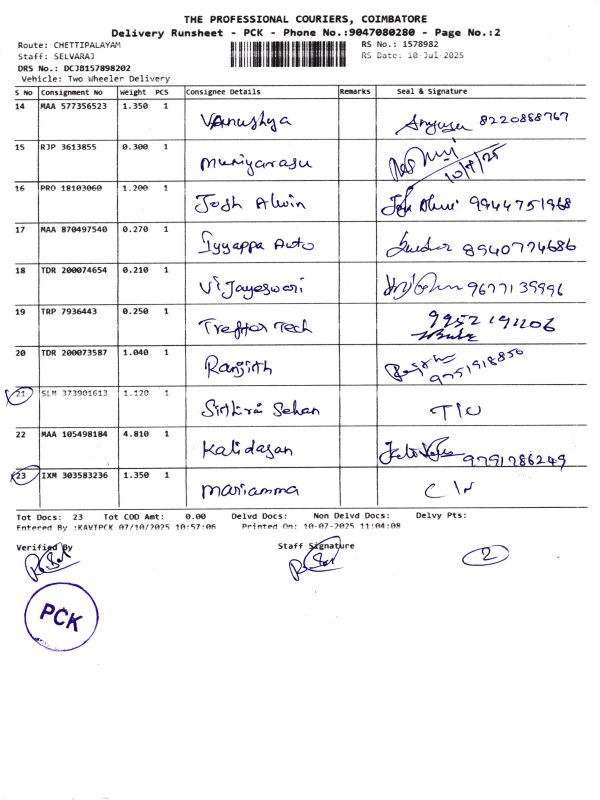 THE PROFESSIONAL COURIERS, COIMBATORE
Delivery Runsheet - PCK - Phone No.:9047080280 - Page No.:2
Route: CHETTIPALAYAM RS No.: 1578982
Staff: SELVARAJ RS Date: 10-Jul-2025
DRS No.: DCJB157898202
Vehicle: Two Wheeler Delivery
S No Consignment No Weight PCS Consignee Details Remarks Seal & Signature
14 MAA 577356523 1.350 1 Vanushya 8220888767
15 RJP 3613855 0.300 1 Muniyarasu 10/7/25
16 PRO 18103060 1.200 1 Josh Alwin 9944751968
17 MAA 870497540 0.270 1 Iyyappa Auto 8940774686
18 TDR 200074654 0.210 1 Vijayeswari 9677139996
19 TRP 7936443 0.250 1 Treftor Tech 9952191106
20 TDR 200073587 1.040 1 Ranjith 9751918850
21 SLM 373901613 1.120 1 Sithirai Sehan T/U
22 MAA 105498184 4.810 1 Kalidasan 9791786249
23 IXM 303583236 1.350 1 Mariamma
Tot Docs: 23 Tot COD Amt: 0.00 Delvd Docs: Non Delvd Docs: Delvy Pts:
Entered By :KAVIPCK 07/10/2025 10:57:06 Printed On: 10-07-2025 11:04:08
Verified By Staff Signature
2
PCK